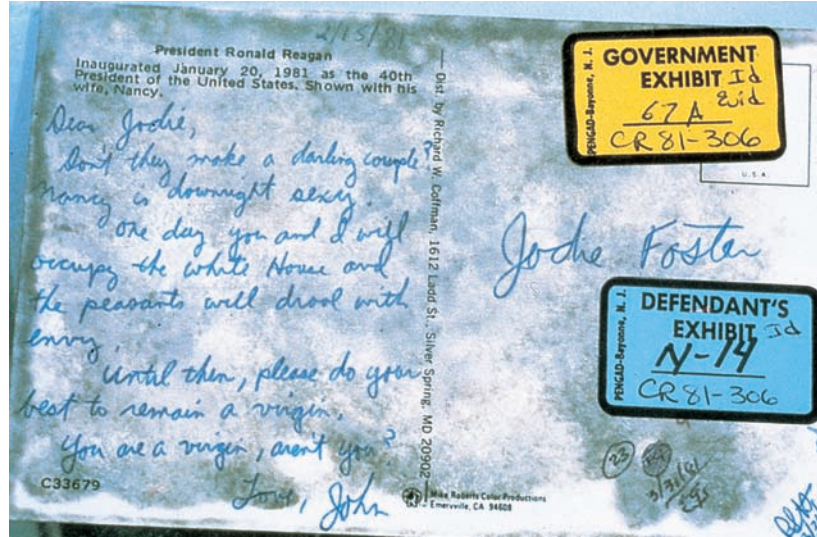 2/15/81
President Ronald Reagan
Inaugurated January 20, 1981 as the 40th
President of the United States. Shown with his
wife, Nancy.
Dear Jodie,
Don't they make a darling couple?
Nancy is downright sexy.
One day you and I will
occupy the White House and
the peasants will drool with
envy.
Until then, please do your
best to remain a virgin.
You are a virgin, aren't you?
Love, John
C33679
Dist. by Richard W. Coffman, 1612 Ladd St., Silver Spring, MD 20902
Mike Roberts Color Productions
Emeryville, CA 94608
PENGAD-Bayonne, N. J.
GOVERNMENT
EXHIBIT Id
67A Evid
CR 81-306
U.S.A.
Jodie Foster
PENGAD-Bayonne, N. J.
DEFENDANT'S
EXHIBIT Id
N-14
CR 81-306
23
3/31/81